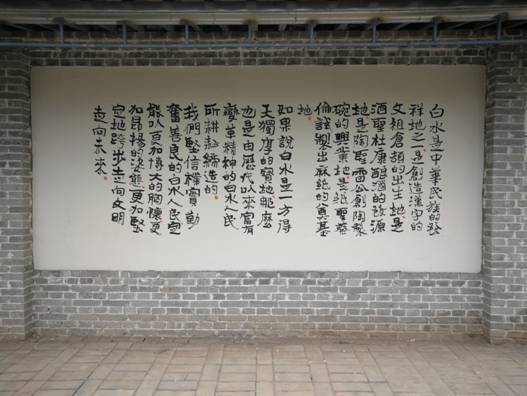 白水是中華民族的發
祥地之一是創造漢字的
文祖倉頡的出生地是
酒聖杜康酿酒的發源
地是陶聖雷公創陶製
碗的興業地是紙聖蔡
倫試製出麻紙的奠基
地
如果說白水是一方得
天獨厚的寶地能麽
也是由歷代以來富有
變革精神的白水人民
所耕耘締造的
我們堅信樸實勤
奮善良的白水人民定
能以百和博大的胸懷更
加昂揚的姿態更加堅
定地跨步走向文明
走向未來